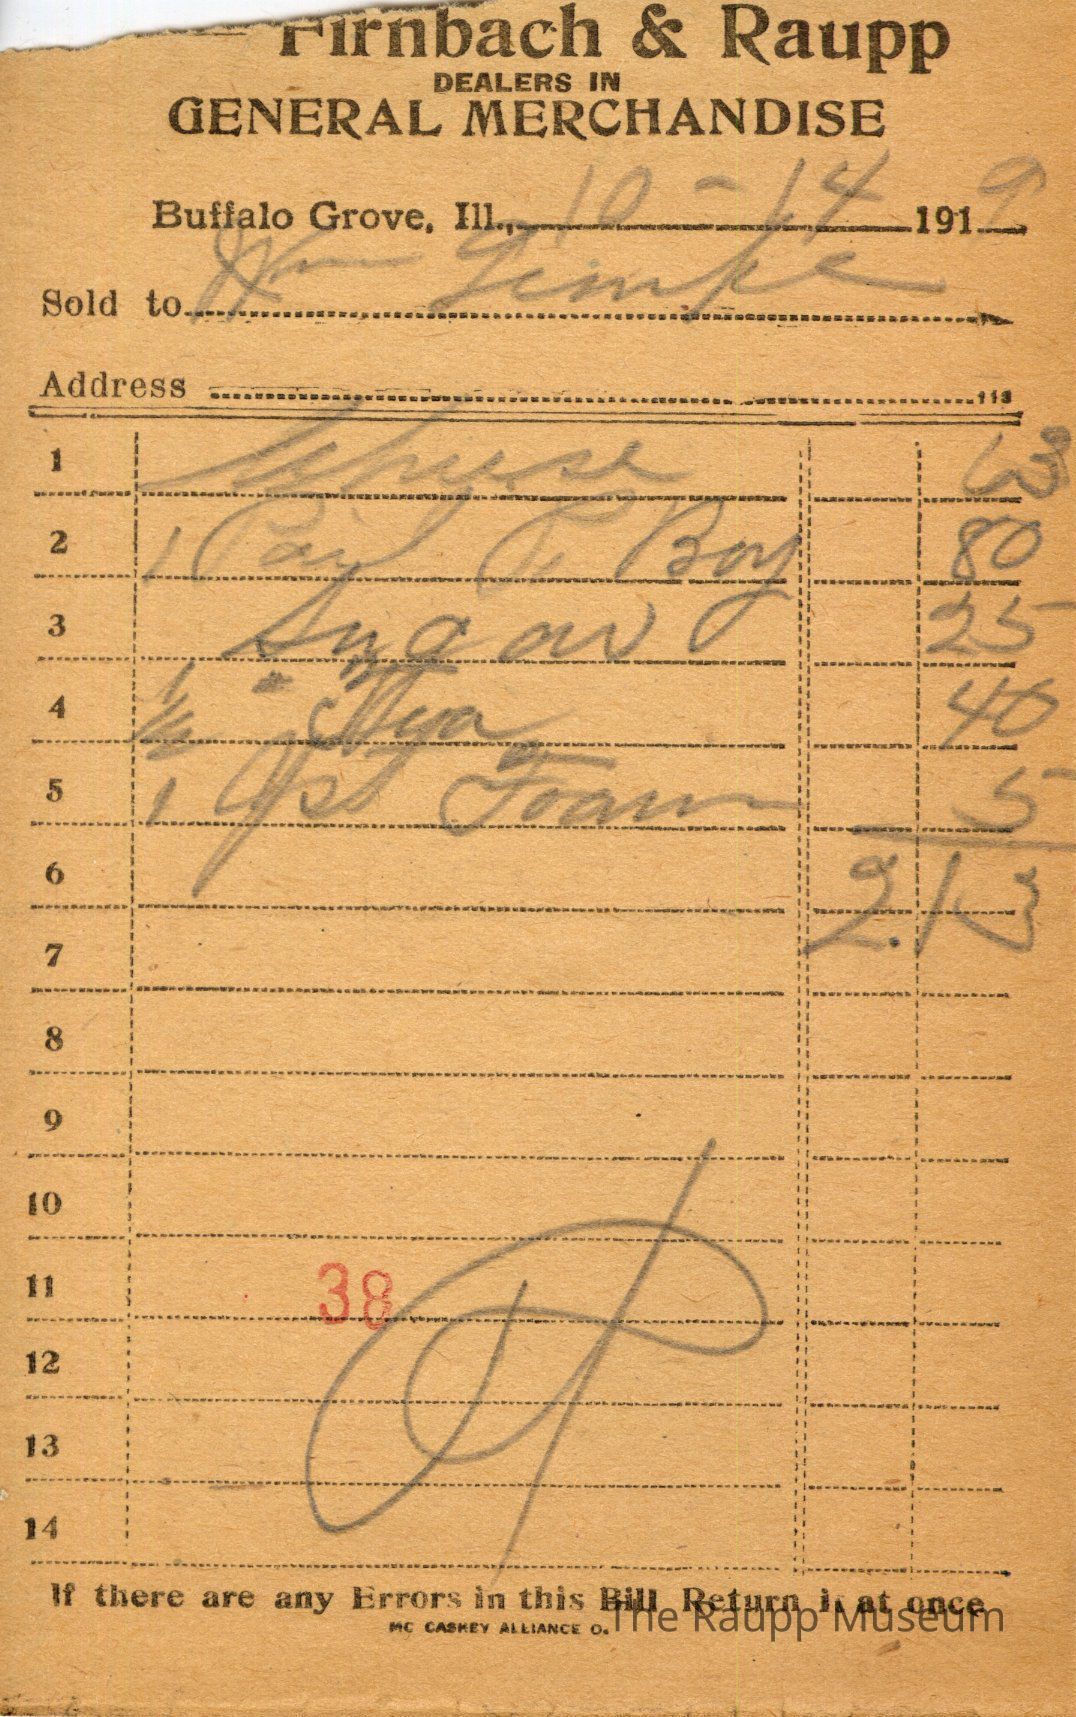 Firnbach & Raupp
DEALERS IN
GENERAL MERCHANDISE
Buffalo Grove, Ill., 10-14 1919
Sold to Wm Gimke
Address 113
1 Cheese 63
2 1 Pail P. Boy 80
3 Sugar 25
4 1/2 " 40
5 1 Foam 5
6 2.13
7
8
9
10
11 38
12
13
14
If there are any Errors in this Bill Return i at once
MC CASKEY ALLIANCE O.
The Raupp Museum